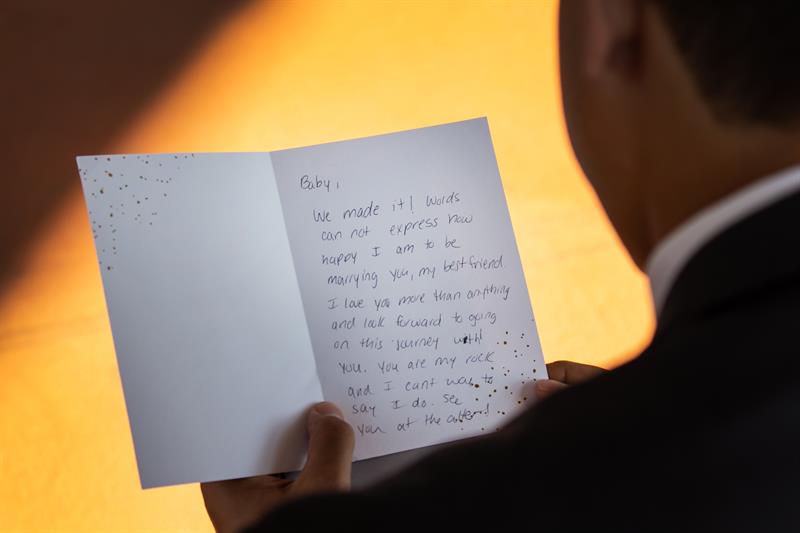 Baby,
We made it! Words
can not express how
happy I am to be
marrying you, my best friend.
I love you more than anything
and look forward to going
on this journey with
you. You are my rock
and I cant wait to
say I do. See
you at the alter!